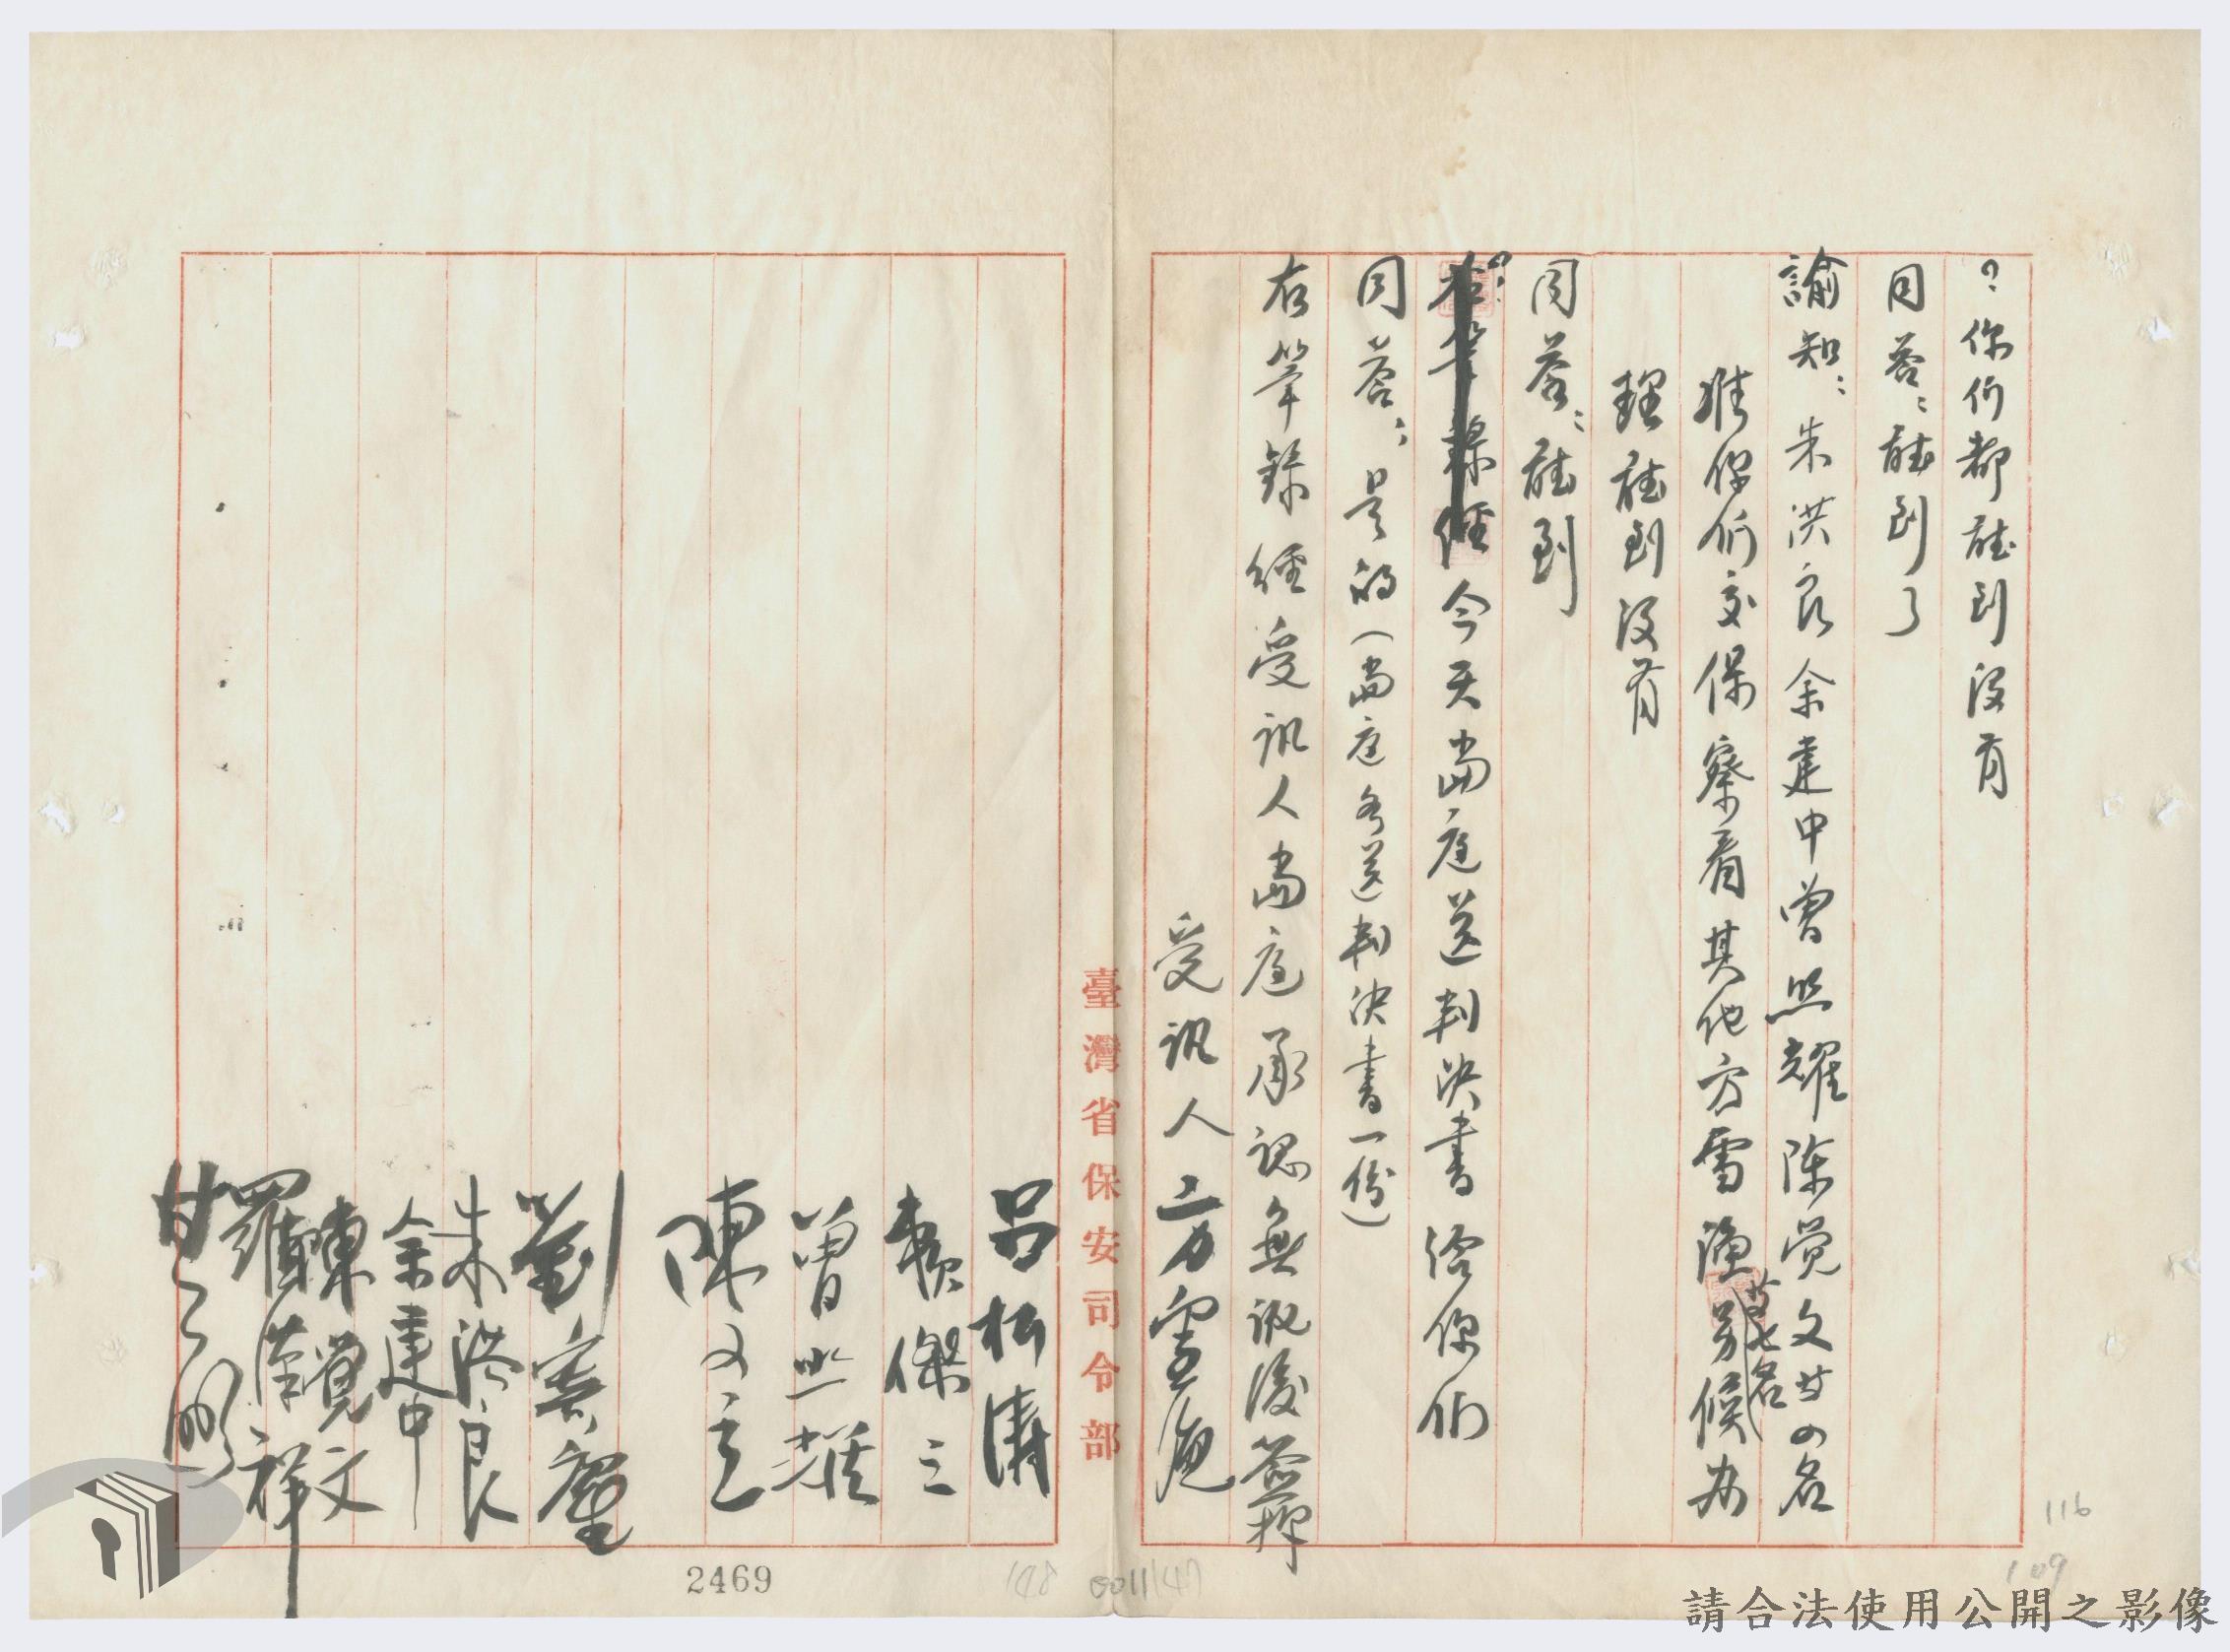 ？你们都聽到没有
同答：聽到了
諭知：朱洪良余建中曾照耀陈觉文等四名
准你们交保察看其他方雪漁等七名另候办
理聽到没有
同答：聽到
右筆錄經
？：今天當庭送判决書给你们
同答：是的（當庭各送判决書一份）
右筆錄經受訊人當庭承認無訛後簽押
受訊人 方雪漁
臺灣省保安司令部
吕松濤
裘傑三
曾照耀
陳文
劉
朱洪良
余建中
陳覺文
羅漢祥
甘
2469
148
0011147
116
109
請合法使用公開之影像